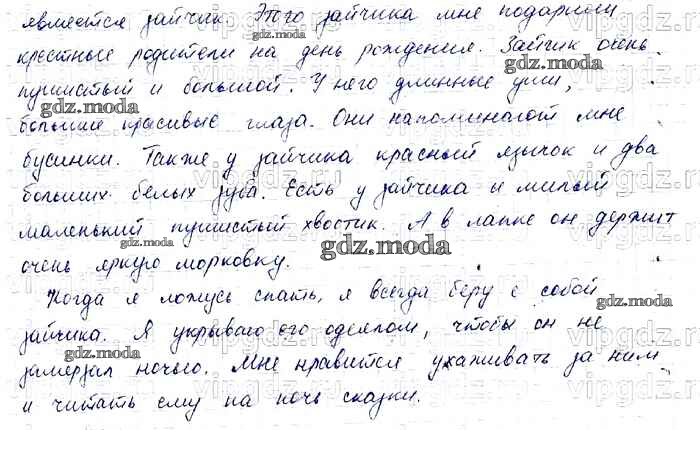 является зайчик. Этого зайчика мне подарили
крестные родители на день рождения. Зайчик очень
пушистый и большой. У него длинные уши,
большие красивые глаза. Они напоминают мне
бусинки. Также у зайчика красный язычок и два
больших белых зуба. Есть у зайчика и милый
маленький пушистый хвостик. А в лапке он держит
очень яркую морковку.
Когда я ложусь спать, я всегда беру с собой
зайчика. Я укрываю его одеялом, чтобы он не
замерзал ночью. Мне нравится ухаживать за ним
и читать ему на ночь сказки.
gdz.moda
gdz.moda
gdz.moda
gdz.moda
gdz.moda
gdz.moda
gdz.moda